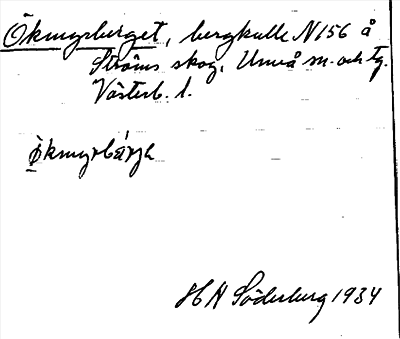 Ökmyrberget, bergkulle N156 å
Ströms skog, Umeå sn. och tg.
Västerb. l.
H N Söderberg 1934